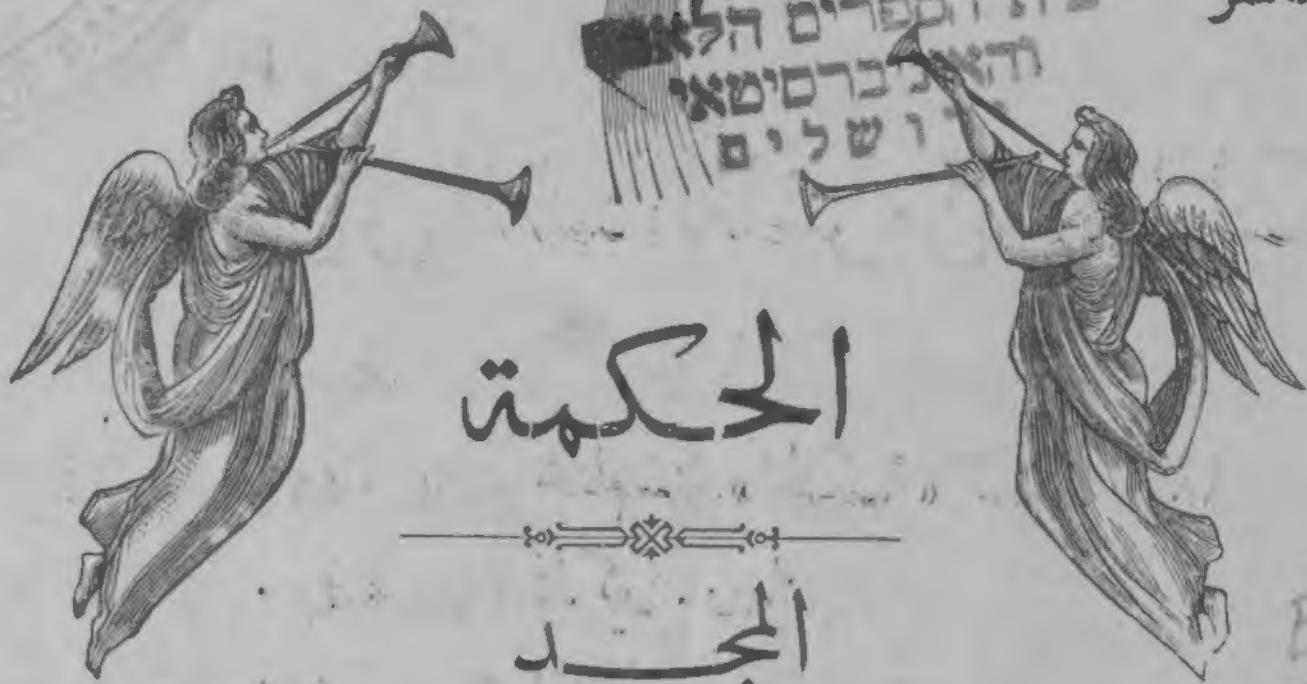 בית הספרים הלאומי
והאוניברסיטאי
ירושלים
الحكمة
المجد